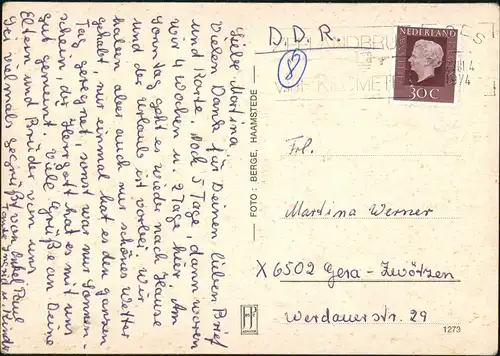 Liebe Martina
Vielen Dank für Deinen lieben Brief
und Karte. Noch 5 Tage dann waren
wir 4 Wochen u. 2 Tage hier. Am
Sonntag geht es wieder nach Hause
und der Urlaub ist vorbei. Wir
haben aber auch nur schönes Wetter
gehabt, nur einmal hat es den ganzen
Tag geregnet, sonst war nur Sonnen-
schein, der Herrgott hat es mit uns
gut gemeint. Viele Grüße an Deine
Eltern und Brüder von uns
Sei vielmals gegrüßt von Onkel Paul
Tante Ingrid u. Kinder
D. D. R.
8
NEDERLAND
30 C
1974
FOTO: BERGE, HAAMSTEDE
Frl.
Martina Werner
X 6502 Gera-Zwötzen
Werdauerstr. 29
1273